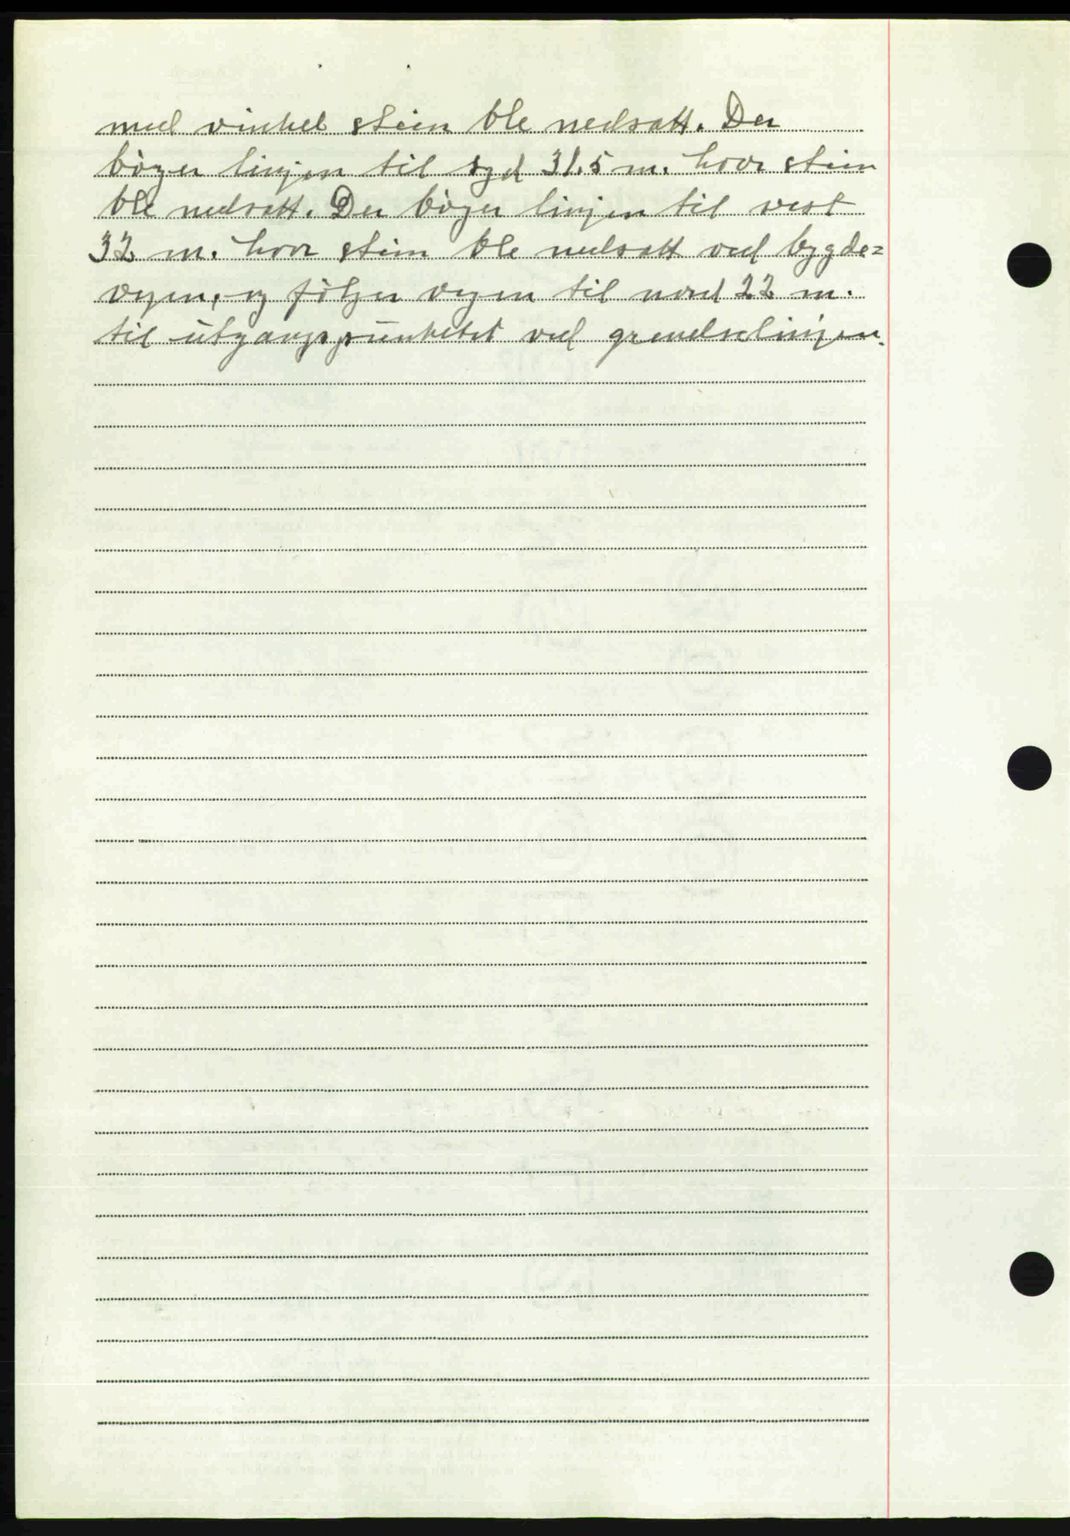 med vinkel stein ble nedsatt. Der
bøyer linjen til syd 31.5 m. hvor stein
ble nedsatt. Der bøyer linjen til vest
32 m. hvor stein ble nedsatt ved bygde=
vegen, og følger vegen til nord 22 m.
til utgangspunktet ved grendselinjen.